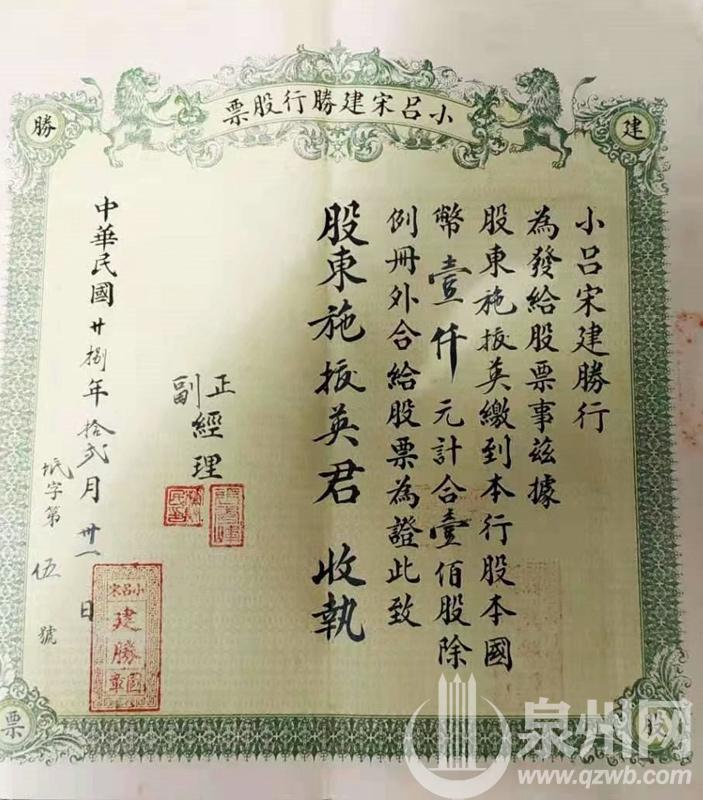 小呂宋建勝行股票
建
勝
股
票
小呂宋建勝行
為發給股票事茲據
股東施拔英繳到本行股本國
幣壹仟元計合壹佰股除
例冊外合給股票為證此致
股東施拔英君 收執
正
副
經理
中華民國廿捌年拾弍月卅一日
字第伍號
小呂宋
建勝
圖章
泉州网
www.qzwb.com